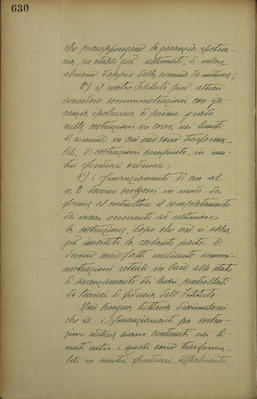 630
che presuppongono la garanzia ipoteca-
ria, su stabili già ultimati, di valore
almeno doppio della somma da mutuarsi;
2°) il nostro Istituto può altresì
concedere somministrazioni con ga-
ranzia ipotecaria di primo grado
sulle costruzioni in corso, nei limiti
di somme in cui esse siano trasforma-
bili, a costruzioni compiute, in mu-
tui fondiari ordinari;
3°) i finanziamenti di cui al
n. 2 devono svolgersi in modo da
fornire al costruttore il completamento
dei mezzi occorrenti ad ultimare
la costruzione, dopo che egli vi abbia
già investito la restante parte, e
devono essere fatti mediante sommi-
nistrazioni rateali in base allo stato
di avanzamento dei lavori, controllati
da tecnici di fiducia dell'Istituto.
Non bisogna tuttavia dissimularsi
che se i finanziamenti per costru-
zioni edilizie siano contenuti nei li-
miti entro i quali sono trasforma-
bili in mutui fondiari,